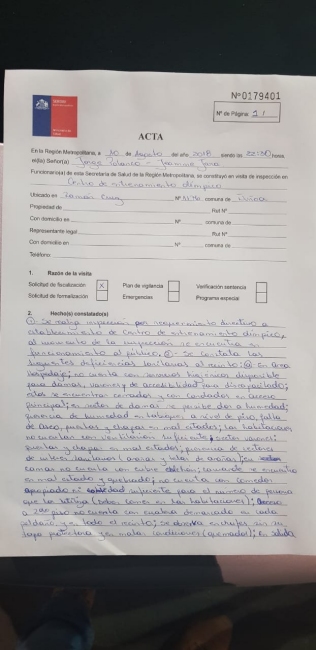 Nº0179401
Nº de Página: 1/
ACTA
En la Región Metropolitana, a 30 de Agosto del año 2018 siendo las 22:30 horas,
el(la) Señor(a)
Funcionario(a) de esta Secretaría de Salud de la Región Metropolitana, se constituyó en visita de inspección en
Centro de entrenamiento olimpico
Ubicado en Ramón Cruz Nº 1176 comuna de Ñuñoa
Propiedad de Rut Nº
Con domicilio en Nº comuna de
Representante legal Rut Nº
Con domicilio en Nº comuna de
Teléfono
1. Razón de la visita
Solicitud de fiscalización X Plan de vigilancia Verificación sentencia
Solicitud de formalización Emergencias Programa especial
2. Hecho(s) constatado(s)
① Se realiza inspección por requerimiento directivo a
establecimiento de Centro de entrenamiento olimpico,
al momento de la inspección se encuentra en
funcionamiento al público; ②- Se constata las
siguientes deficiencias sanitarias al recinto: En area
no cuenta con servicios higienicos disponible
para damas, varones y de accesibilidad para discapacitado;
estos se encuentran cerrados y con candados en acceso
principal; en de damas se percibe olor a humedad;
presencia de humedad en tabiques a nivel de piso, falta
de aseo, puertas y chapas en mal estado; Las habitaciones
no cuentan con ventilación suficiente,
puertas y chapas en mal estado; presencia de vectores
de interes sanitario (arañas y telas de arañas); En
camas no cuenta con cubre colchon; se encuentra
en mal estado y quebrado; no cuenta con comedor
apropiado ni suficiente para el numero de persona
que los utiliza (estos comen en las habitaciones); Acceso
a 2do piso no cuenta con huella demarcada en cada
peldaño y en todo el recinto; se observa enchufes sin su
tapa protectora y en malas condiciones (quemados); En salida